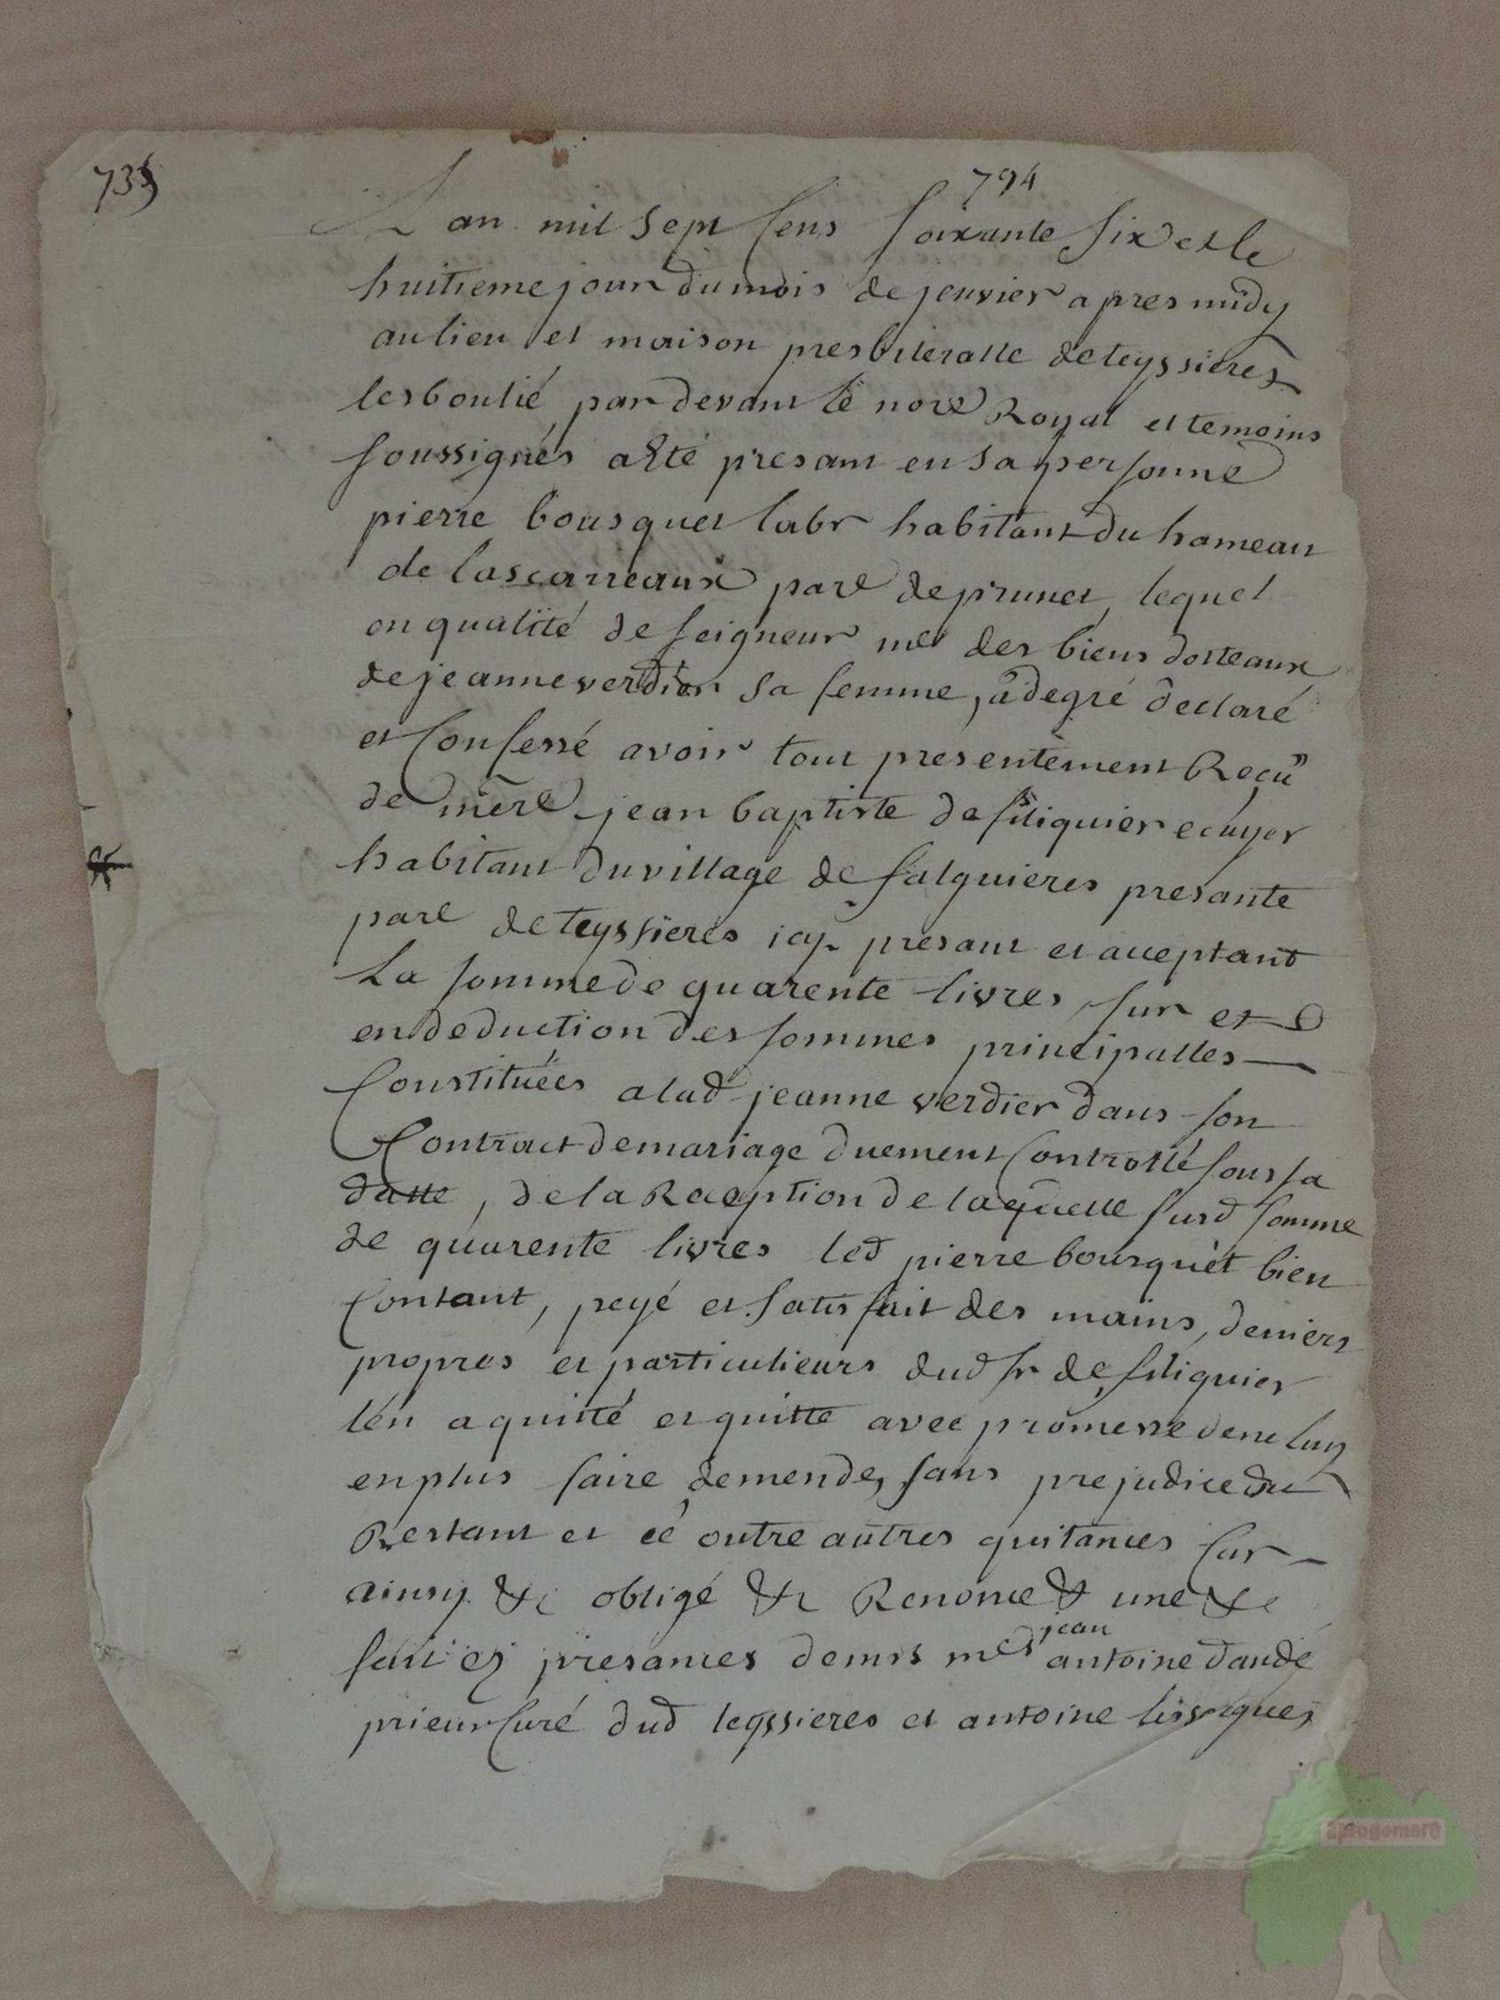 735
794
Lan mil sept cens soixante six et le
huitieme jour du mois de jenvier apres midy
au lieu et maison presbiteralle de teyssieres
les boulié par devant le nore Royal et temoins
soussignés a eté presant en sa personne
pierre bousquet labr habitant du hameau
de lascarreaux pare de prunet, lequel
en qualité de seigneur me des biens dosteaux
de jeanne verdier sa femme, a degré declaré
et confessé avoir tout presentement Reçu
de mère jean baptiste de filiquier ecuyer
habitant du village de falguieres presante
pare de teyssieres icy presant et acceptant
La somme de quarente livres, sur et
en deduction des sommes principalles
Constituées a lad jeanne verdier dans son
Contract de mariage duement Controllé sous sa
datte, de la Reception de laquelle susd somme
de quarente livres led pierre bousquet bien
Contant, peyé et satisfait des mains, deniers
propres et particulieurs dud sr de filiquier
l'en a quitté et quitte avec promesse de ne luy
en plus faire demende, sans prejudice du
Restant et cé outre autres quitances Car
ainsy &c obligé &c Renonce & une &c
fait ez presances de mrs mes jean antoine daudé
prieur Curé dud teyssieres et antoine
aprogemere